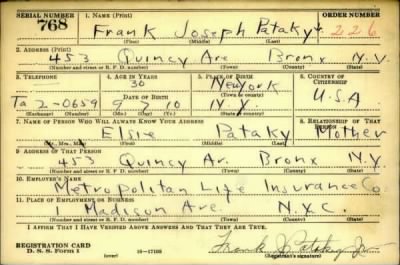 SERIAL NUMBER 1. NAME (Print) ORDER NUMBER
768 Frank Joseph Pataky Jr 226
(First) (Middle) (Last)
2. ADDRESS (Print)
453 Quincy Ave Bronx N.Y.
(Number and street or R. F. D. number) (Town) (County) (State)
3. TELEPHONE 4. AGE IN YEARS 5. PLACE OF BIRTH 6. COUNTRY OF CITIZENSHIP
30 New York
(Town or county)
Ta 2-0659 9 7 10 N.Y. U.S.A
(Exchange) (Number) (Mo.) (Day) (Yr.) (State or country)
7. NAME OF PERSON WHO WILL ALWAYS KNOW YOUR ADDRESS 8. RELATIONSHIP OF THAT PERSON
Elsie Pataky Mother
(Mr., Mrs., Miss) (First) (Middle) (Last)
9. ADDRESS OF THAT PERSON
453 Quincy Av. Bronx N.Y.
(Number and street or R. F. D. number) (Town) (County) (State)
10. EMPLOYER'S NAME
Metropolitan Life Insurance Co.
11. PLACE OF EMPLOYMENT OR BUSINESS
1 Madison Ave N.Y.C.
(Number and street or R. F. D. number) (Town) (County) (State)
I AFFIRM THAT I HAVE VERIFIED ABOVE ANSWERS AND THAT THEY ARE TRUE.
REGISTRATION CARD
D. S. S. FORM 1 (over) 16-17105 Frank J Pataky Jr
(Registrant's signature)